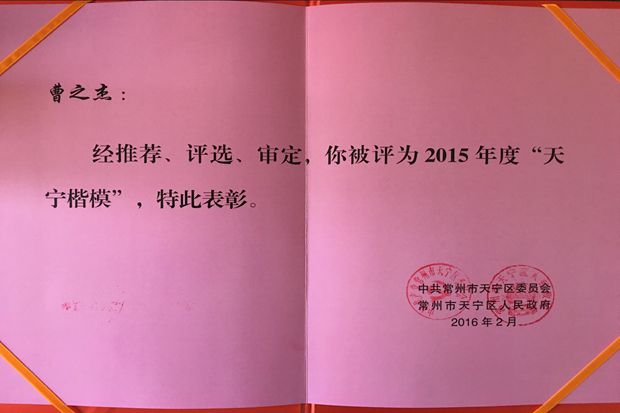 曹之杰：
经推荐、评选、审定，你被评为2015年度“天
宁楷模”，特此表彰。
中共常州市天宁区委员会
常州市天宁区人民政府
2016年2月